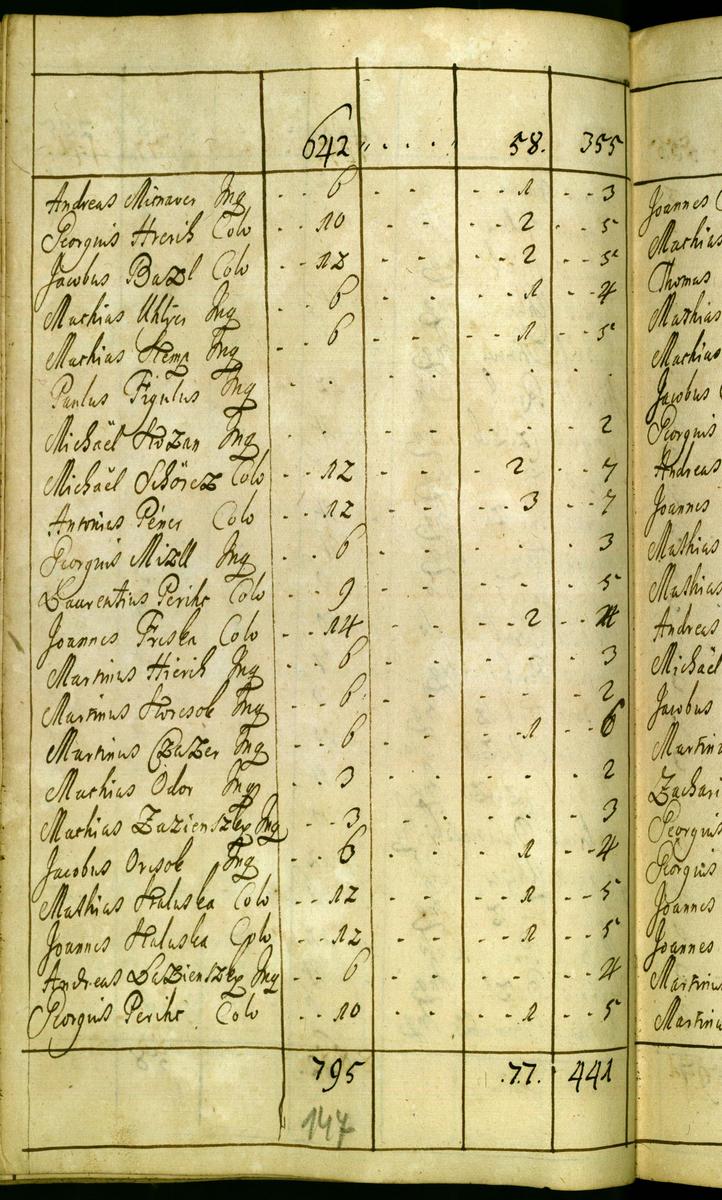 642 . . . . 58. 355
Andreas Mirnaver Inq - - 6 - - - - 1 - - 3
Georgius Hrerih Colo - - 10 - - - - 2 - - 5
Jacobus Bazl Colo - - 12 - - - - 2 - - 5
Mathias Uhljes Inq - - 6 - - - - 1 - - 4
Mathias Hemp Inq - - 6 - - - - 1 - - 5
Paulus Figulus Inq
Michaël Hozan Inq 2
Michaël Schörcz Colo - - 12 - - 2 - - 7
Antonius Péner Colo - - 12 - - - 3 - - 7
Georgius Mizll Inq - - 6 - - - - - 3
Laurentius Perihr Colo - - 9 - - - - - 5
Joannes Friska Colo - - 14 - - - 2 - - 4
Martinus Hierih Inq - - 6 - - - - - 3
Martinus Horesok Inq - - 6 - - - - - 2
Martinus Czazer Inq - - 6 - - - 1 - - 6
Mathias Odor Inq - - 3 - - - - - 2
Mathias Lazienszky Inq - - 3 - - - - - 3
Jacobus Oresok Inq - - 6 - - - 1 - - 4
Mathias Haluska Colo - - 12 - - - 1 - - 5
Joannes Haluska Colo - - 12 - - - 1 - - 5
Andreas Lazienszky Inq - - 6 - - - - - 4
Georgius Perihr Colo - - 10 - - - 1 - - 5
795 .77. 441
147
Joannes
Mathias
Thomas
Mathias
Mathias
Jacobus
Georgius
Andreas
Joannes
Mathias
Mathias
Andreas
Michaël
Jacobus
Martinu
Zachari
Georgius
Georgius
Joannes
Joannes
Martinus
Martinu